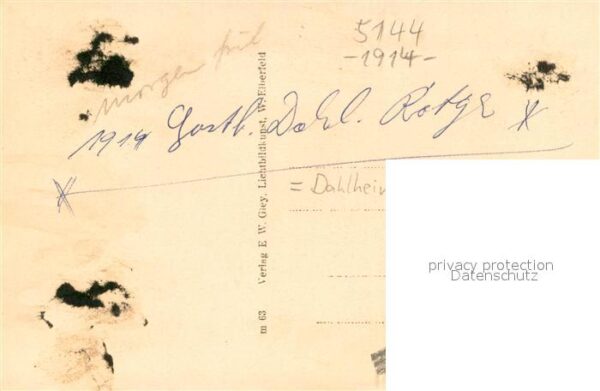 5144
-1914-
morgen früh
1914 Gastl. Dahl. Rötge
= Dahlheim
m 63 Verlag E. W. Gley, Lichtbildkunst, W.-Elberfeld
privacy protection
Datenschutz